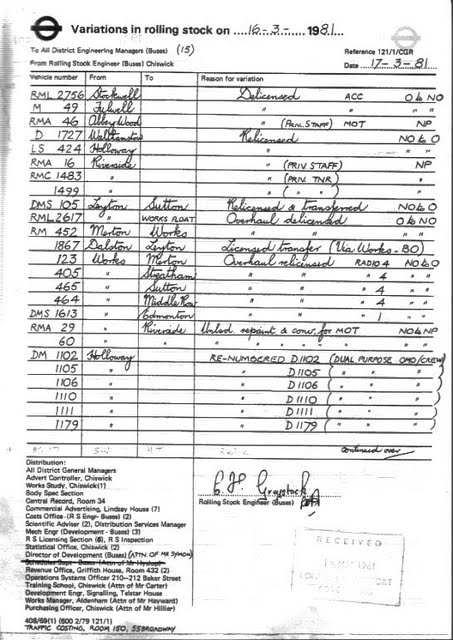 Variations in rolling stock on 16-3- 1981.
To All District Engineering Managers (Buses) (15)
Reference 121/1/CGR
From Rolling Stock Engineer (Buses) Chiswick
Date 17-3-81
Vehicle number From To Reason for variation
RML 2756 Stockwell Delicensed ACC O to NO
M 49 Fulwell " " "
RMA 46 Abbey Wood " (Priv. STAFF) MOT NP
D 1727 Walthamstow Relicensed NO to O
LS 424 Holloway " "
RMA 16 Riverside " (PRIV STAFF) NP
RMC 1483 " " (PRIV TNR) "
1499 " " ( " " ) "
DMS 105 Leyton Sutton Relicensed & transferred NO to O
RML 2617 " WORKS FLOAT Overhaul delicensed O to NO
RM 452 Merton Works " " "
1867 Dalston Leyton Licensed transfer (Via Works - BO)
123 Works Merton Overhaul relicensed RADIO 4 NO to O
405 " Streatham " " 4 "
465 " Sutton " " 4 "
464 " Middle Row " " 4 "
DMS 1613 " Edmonton " " 1 "
RMA 29 " Riverside Unlsd repaint & conv. for MOT NO to NP
60 " " " " " " " "
DM 1102 Holloway RE-NUMBERED D1102 (DUAL PURPOSE OMO/CREW)
1105 " D1105 ( " " " )
1106 " D1106 ( " " " )
1110 " D1110 ( " " " )
1111 " D1111 ( " " " )
1179 " D1179 ( " " " )
continued over
Distribution:
All District General Managers
Advert Controller, Chiswick
Works Study, Chiswick(1)
Body Spec Section
Central Record, Room 34
Commercial Advertising, Lindsay House (7)
Costs Office (R S Engr- Buses) (2)
Scientific Adviser (2), Distribution Services Manager
Mech Engr (Development - Buses) (3)
R S Licensing Section (6), R S Inspection
Statistical Office, Chiswick (2)
Director of Development (Buses) (ATTN OF MR SYMON)
Schedules Supt - Buses (Attn of Mr Hyslop)
Revenue Office, Griffith House, Room 432 (2)
Operations Systems Officer 210-212 Baker Street
Training School, Chiswick (Attn of Mr Carter)
Development Engr, Signalling, Telstar House
Works Manager, Aldenham (Attn of Mr Hayward)
Purchasing Officer, Chiswick (Attn of Mr Hillier)
408/69(1) (500 2/79 121/1)
TRAFFIC COSTING, ROOM 150, 55 BROADWAY
Rolling Stock Engineer (Buses)
RECEIVED
18 MAR 1981